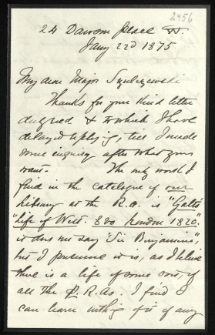 2956
24 Dawson Place W.
Jany 22d 1875
My dear Major
Thanks for your kind letter
& which I have
delayed replying, till I made
some enquiry after what you
want. The only work I
find in the catalogue of our
library at the R.A. is "Galt's
"life of West. 8vo London 1820",
it does not say "Sir Benjamin",
but I presume it is, as I believe
there is a life of some sort of
all the P.R.As. I find I
can learn nothing of any